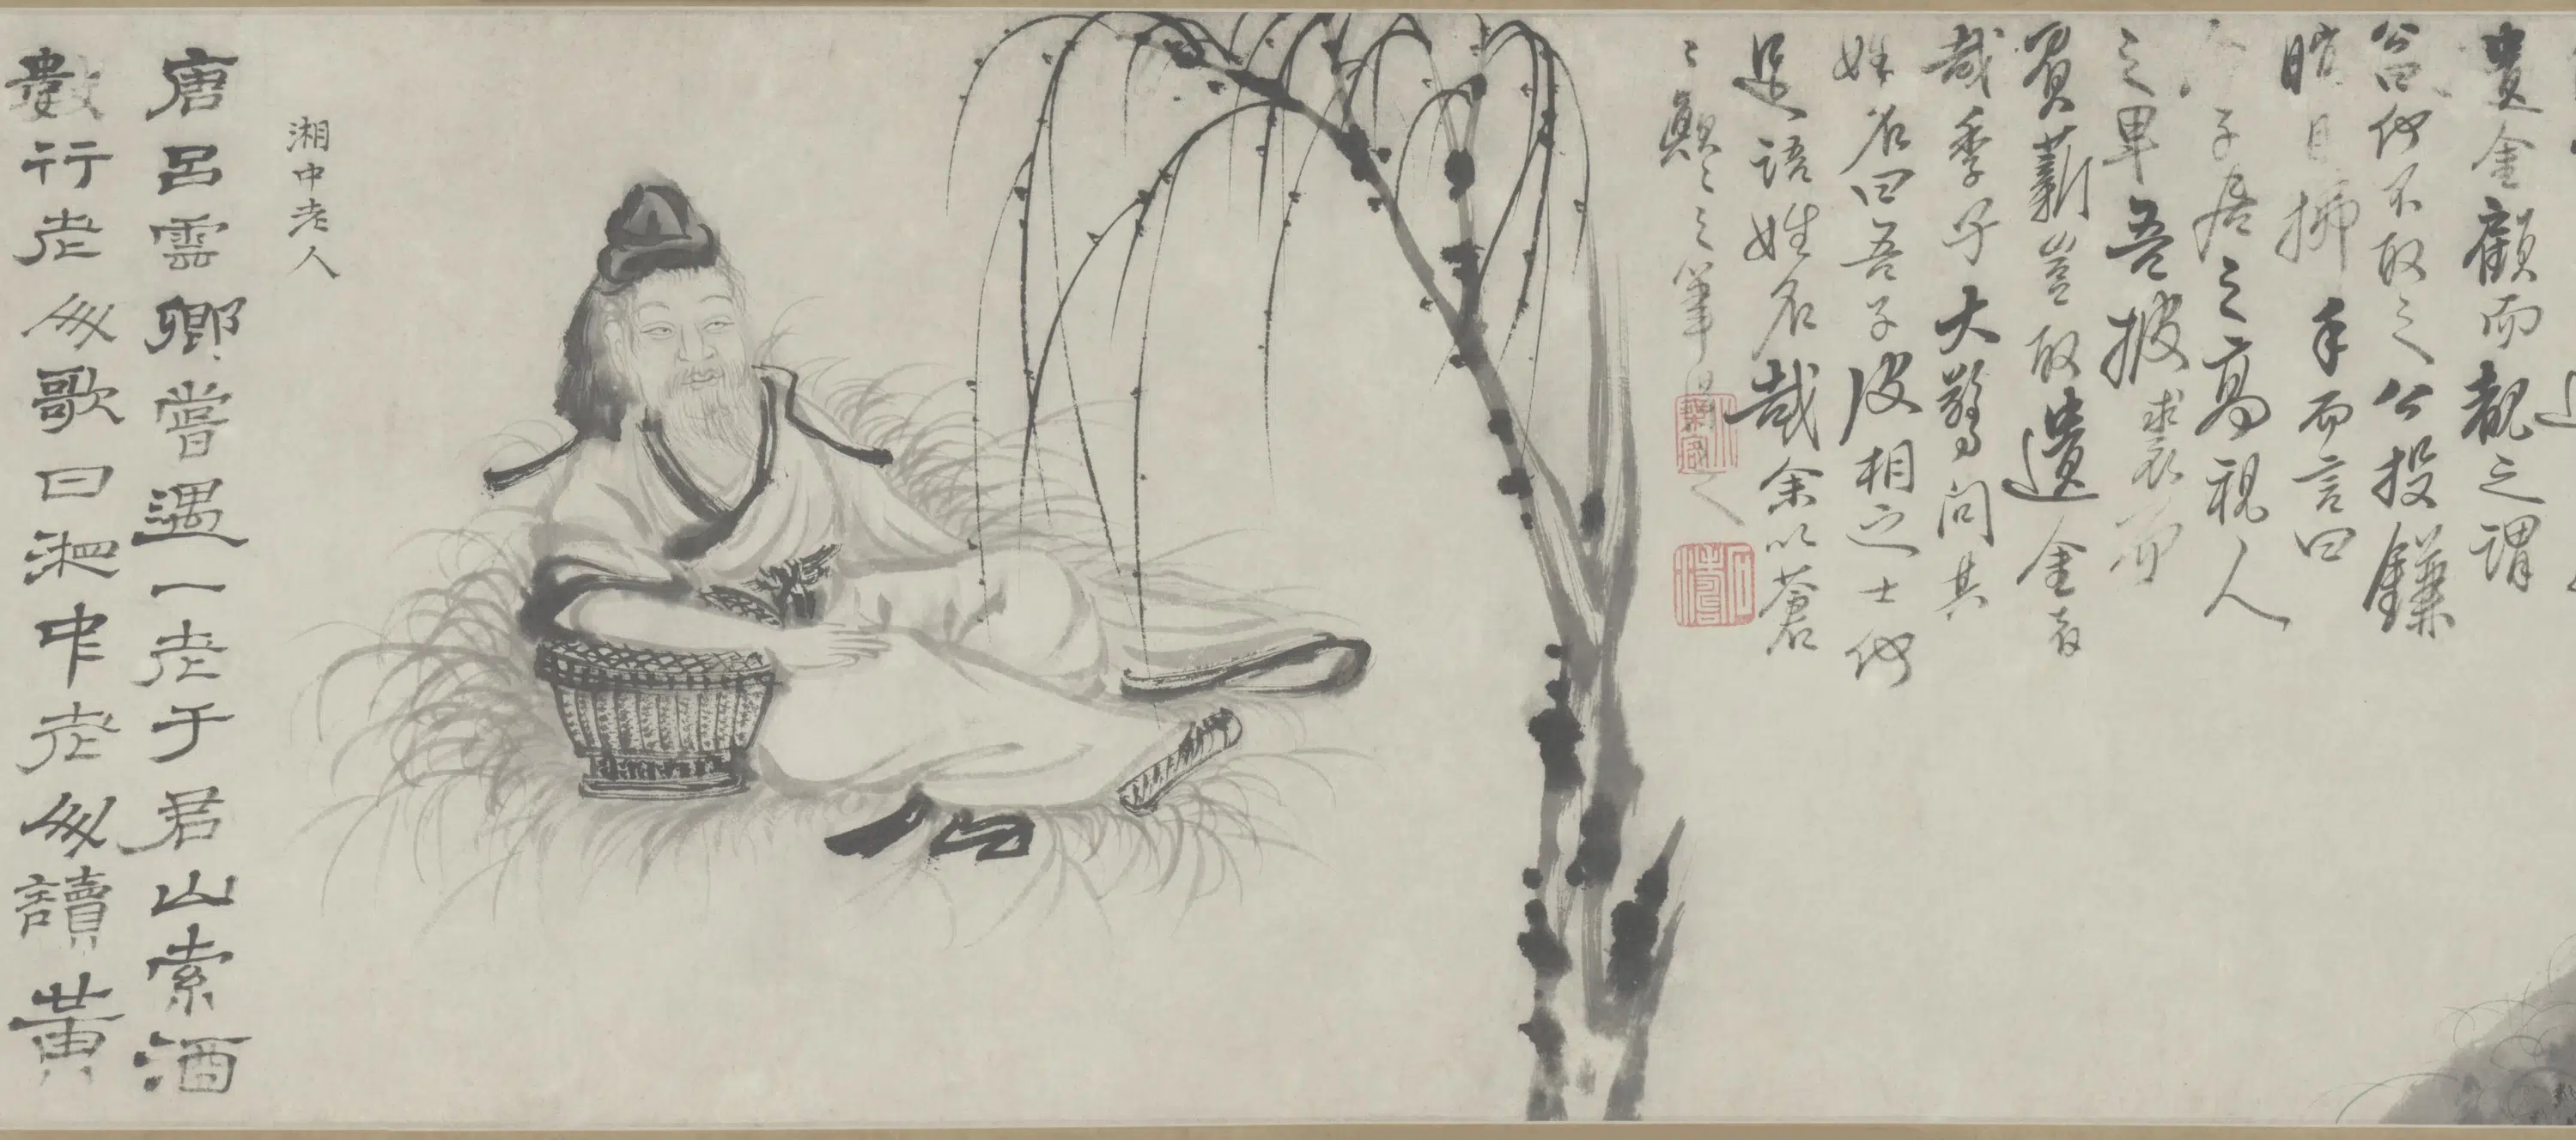 遺金顧而覩之謂
公曰何不取之公投鎌
瞋目拂手而言曰
何子居之高視人
之卑吾披裘而
負薪豈取遺金者
哉季子大驚問其
姓名曰吾子皮相之士何
足語姓名哉余以蒼
〻顛〻之筆寫之
小乘客
石濤
湘中老人
唐呂雲卿嘗遇一老于君山索酒
數行老人歌曰湘中老人讀黃